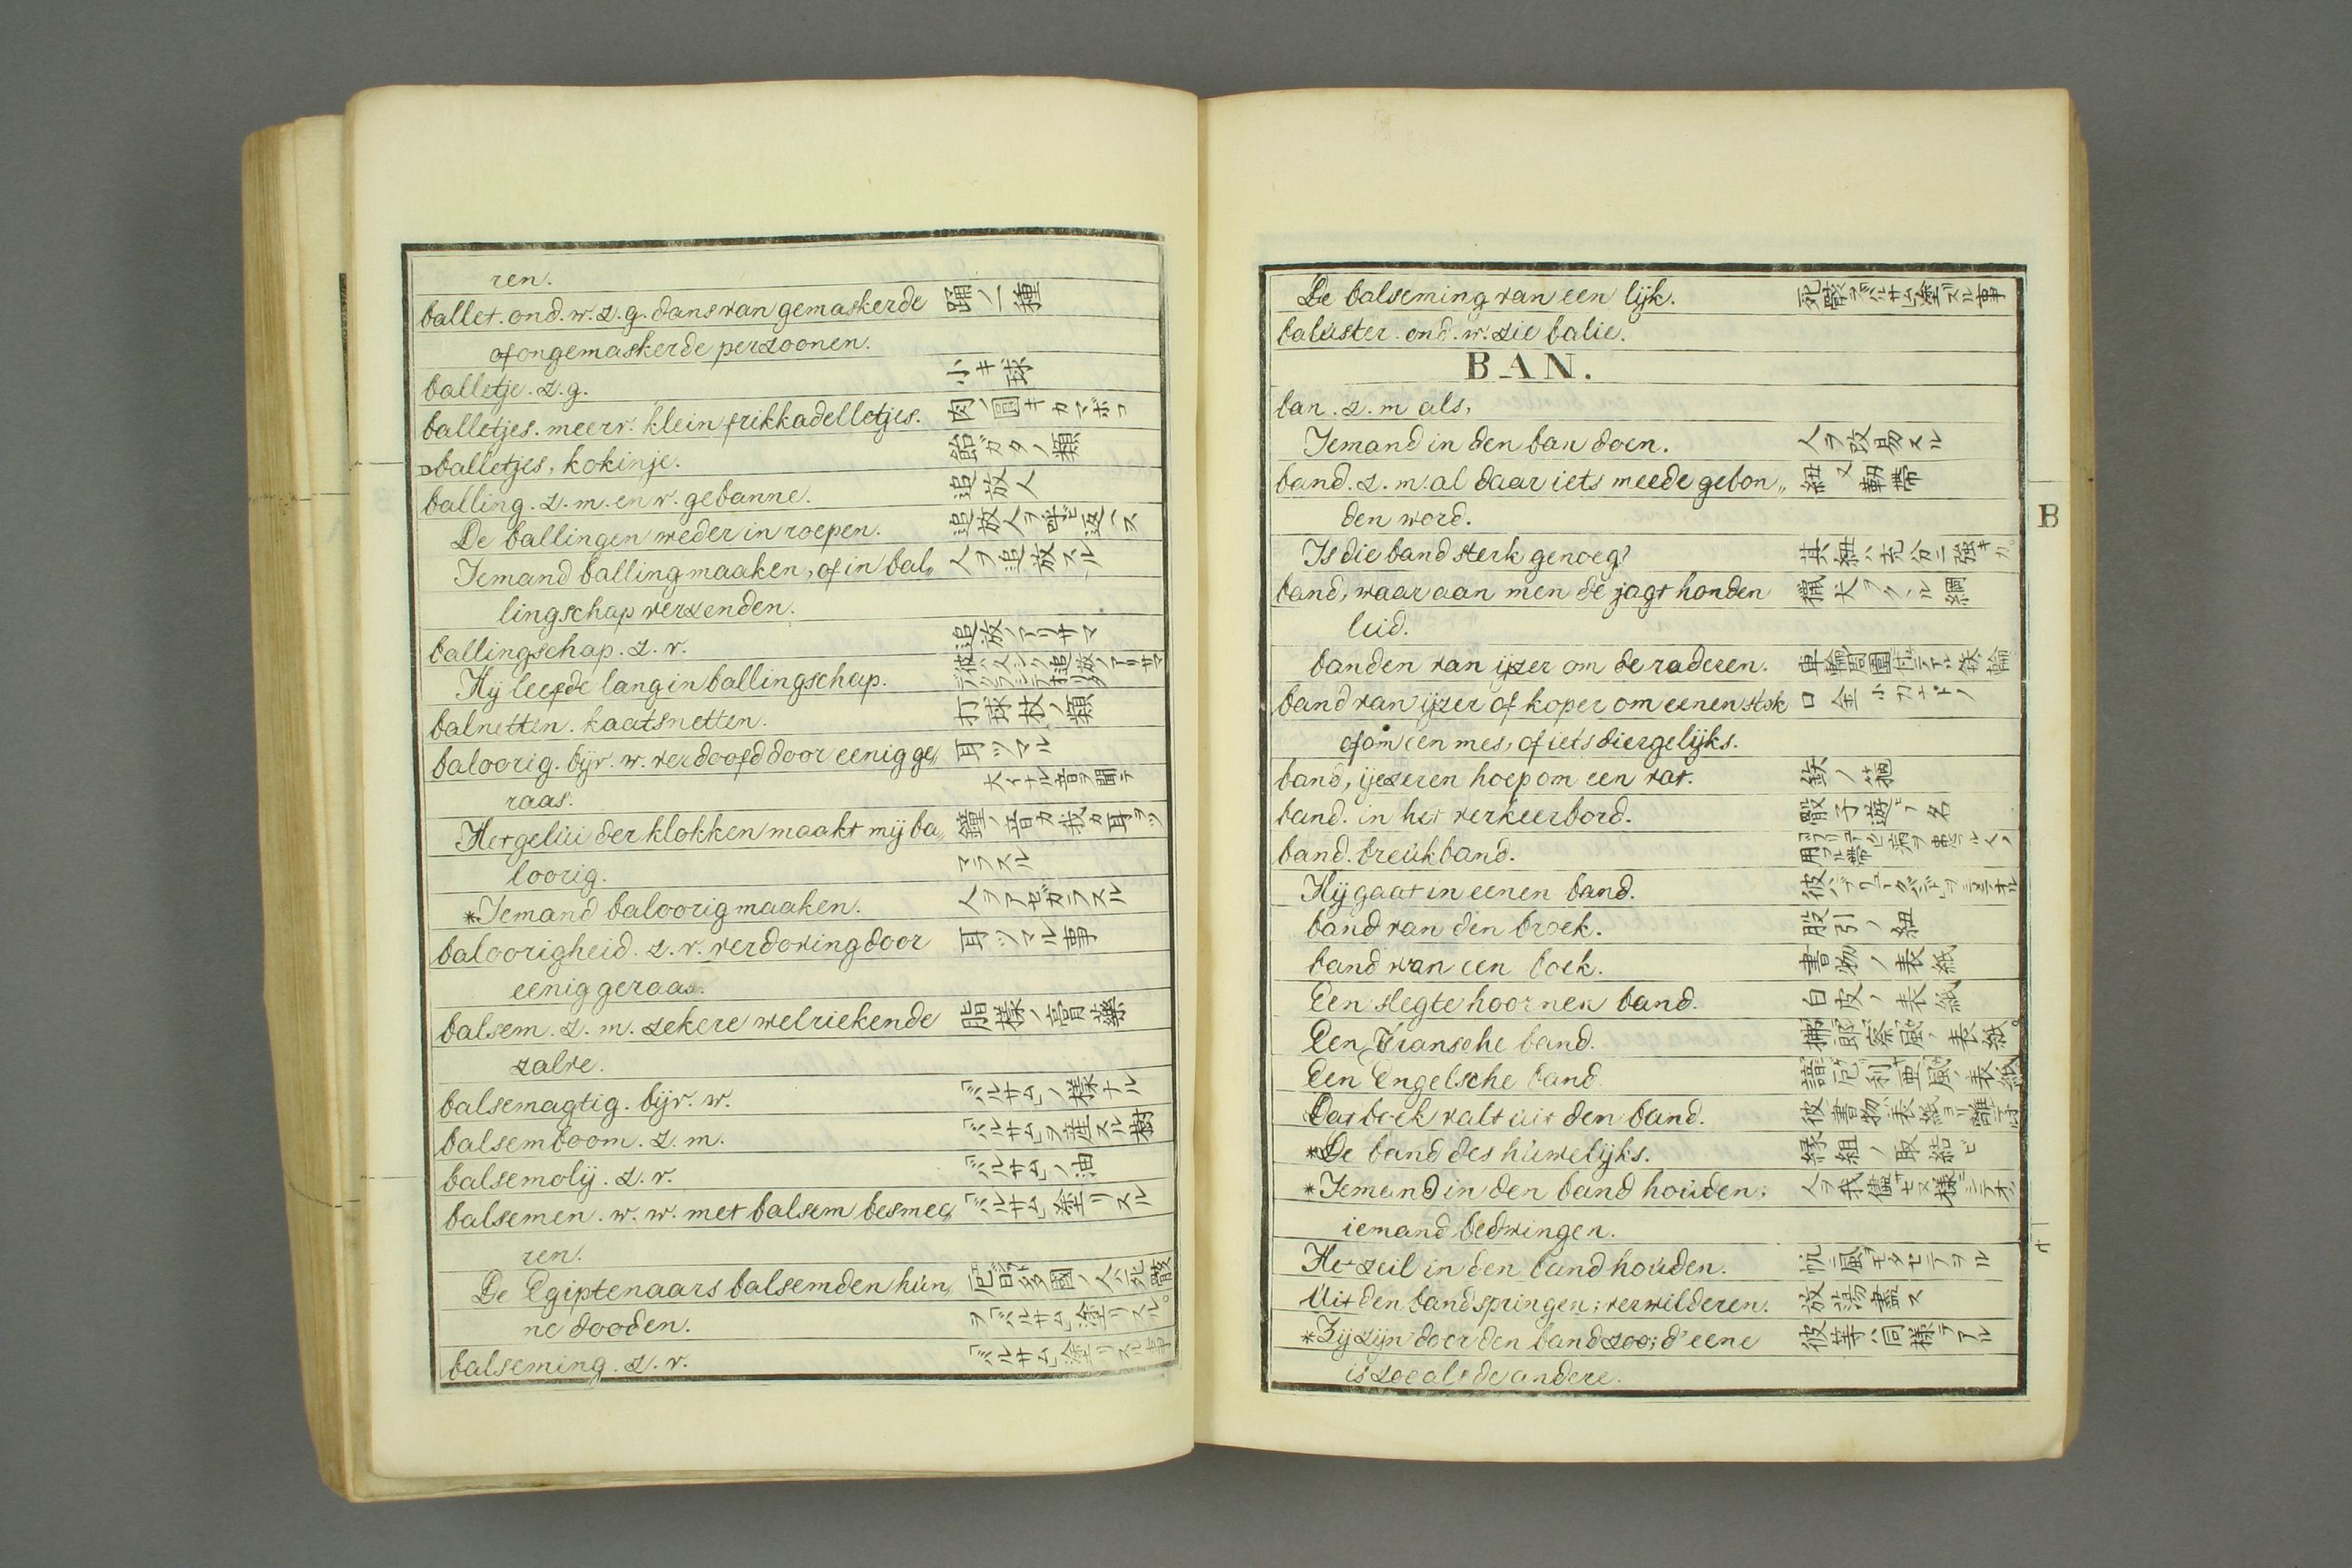 ren.
ballet. ond. w. z. g. dans van gemaskerde 踊ノ一種
of ongemaskerde perzoonen.
balletje. z. g. 小キ球
balletjes. meerv. klein frikkadelletjes. 肉ノ圓キカマボコ
balletjes, kokinje. 飴ガタノ類
balling. z. m. en v. gebanne. 追放人
De ballingen weder in roepen. 追放人ヲ呼ビ返ス
Iemand balling maaken, of in bal„ 人ヲ追放スル
lingschap verzenden.
ballingschap. z. v. 追放ノアリサマ
Hij leefde lang in ballingschap. 彼ハ久シク追放ノアリサマ
balnetten. kaatsnetten. 打球杖ノ類
baloorig. bijv. w. verdoofd door eenig ge„ 耳ツマル
raas. 大イナル音ヲ聞テ
Het gelúi der klokken maakt mij ba„ 鐘ノ音カ我カ耳ヲツ
loorig. マラスル
*Iemand baloorig maaken. 人ヲアゼガラスル
baloorigheid. z. v. verdoving door 耳ツマル事
eenig geraas.
balsem. z. m. zekere welriekende 脂様ノ膏薬
zalve.
balsemagtig. bijv. w. バルサムノ様ナル
balsemboom. z. m. バルサムヲ産スル樹
balsemolij. z. v. バルサムノ油
balsemen. w. w. met balsem besmee„ バルサム塗リスル
ren.
De Egiptenaars balsemden hún„ 國ノ人ハ死骸
ne dooden. ヲバルサム塗リスル。
balseming. z. v. バルサム塗リスル事
De balseming van een lijk. 死骸ヲバルサム塗リスル事
balúster. ond. w. zie balie.
BAN.
ban. z. m als,
Iemand in den ban doen. 人ヲ改易スル
band. z. m. al daar iets meede gebon„ 紐又靭帯
den word.
Is die band sterk genoeg? 其紐ハ充分ニ強キカ。
band, waar aan men de jagt honden 犬ヲクヽル綱
leid.
banden van ijzer om de raderen. 車輪ノ周圍ニ付テアル鉄輪
band van ijzer of koper om eenen stok 口金小刀ナドノ
of om een mes, of iets diergelijks.
band, ijezeren hoep om een vat. 鉄ノ箍
band. in het verkeerbord. 骰子遊ビノ名
band. breúkband.
Hij gaat in eenen band.
band van den broek. 股引ノ紐
band van een boek. 書物ノ表紙
Een slegte hoornen band. 白皮ノ表紙
Een Fransche band. 拂郎察風ノ表紙。
Een Engelsche band. 諳厄利亜風ノ表紙
Dat boek valt uit den band. 彼書物ハ表紙ヨリ離テオル
*De band des húwelijks. 縁組ノ取結ビ
*Iemand in den band hoúden; 人ヲ我儘サセヌ様ニシテオク
iemand bedwingen.
Het zeil in den band hoúden. 帆ニ風ヲモタセテヲル
Uit den band springen; verwilderen. 放蕩ヲ盡ス
*Zij zijn door den band zoo; d'eene 彼等ハ同様テアル
is zoo als de andere.
B